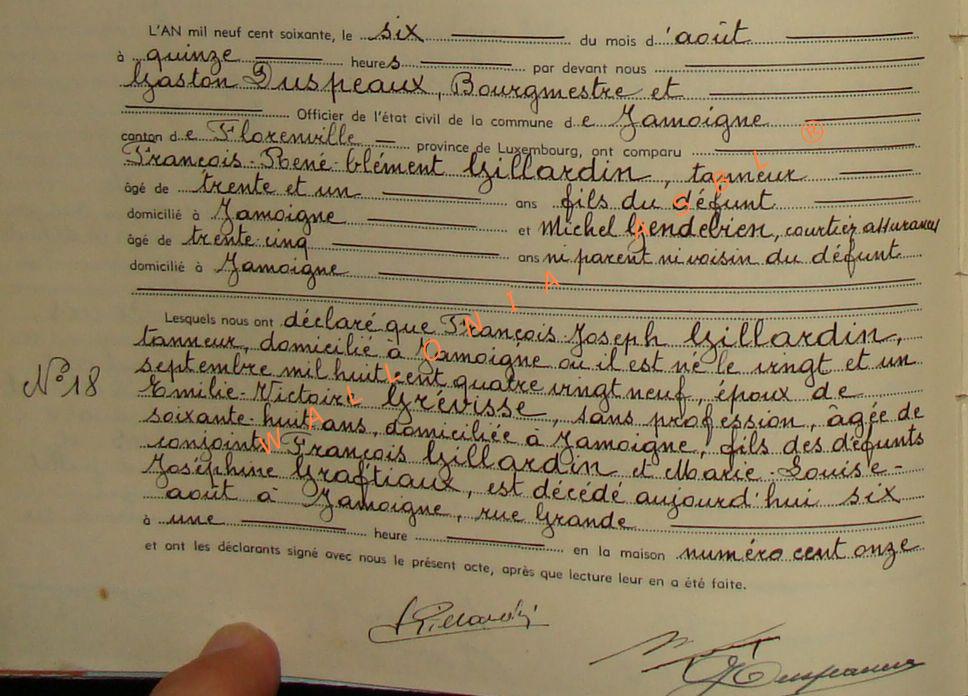 L'AN mil neuf cent soixante, le six du mois d'août
à quinze heures par devant nous
Gaston Duspeaux, Bourgmestre et
Officier de l'état civil de la commune de Jamoigne
canton de Florenville province de Luxembourg, ont comparu
François-René-Clément Gillardin, tanneur
âgé de trente et un ans fils du défunt
domicilié à Jamoigne et Michel Gendebien, courtier assurances
âgé de trente cinq ans ni parent ni voisin du défunt
domicilié à Jamoigne
Lesquels nous ont déclaré que François-Joseph Gillardin,
tanneur, domicilié à Jamoigne où il est né le vingt et un
septembre mil huit cent quatre vingt neuf, époux de
N° 18
Emilie-Victoire Grévisse, sans profession, âgée de
soixante-huit ans, domiciliée à Jamoigne, fils des défunts
conjoints François Gillardin et Marie-Louise-
Joséphine Graftiaux, est décédé aujourd'hui six
août à Jamoigne, rue Grande
à une heure en la maison numéro cent onze
et ont les déclarants signé avec nous le présent acte, après que lecture leur en a été faite.
WALLONIA ASBL ®